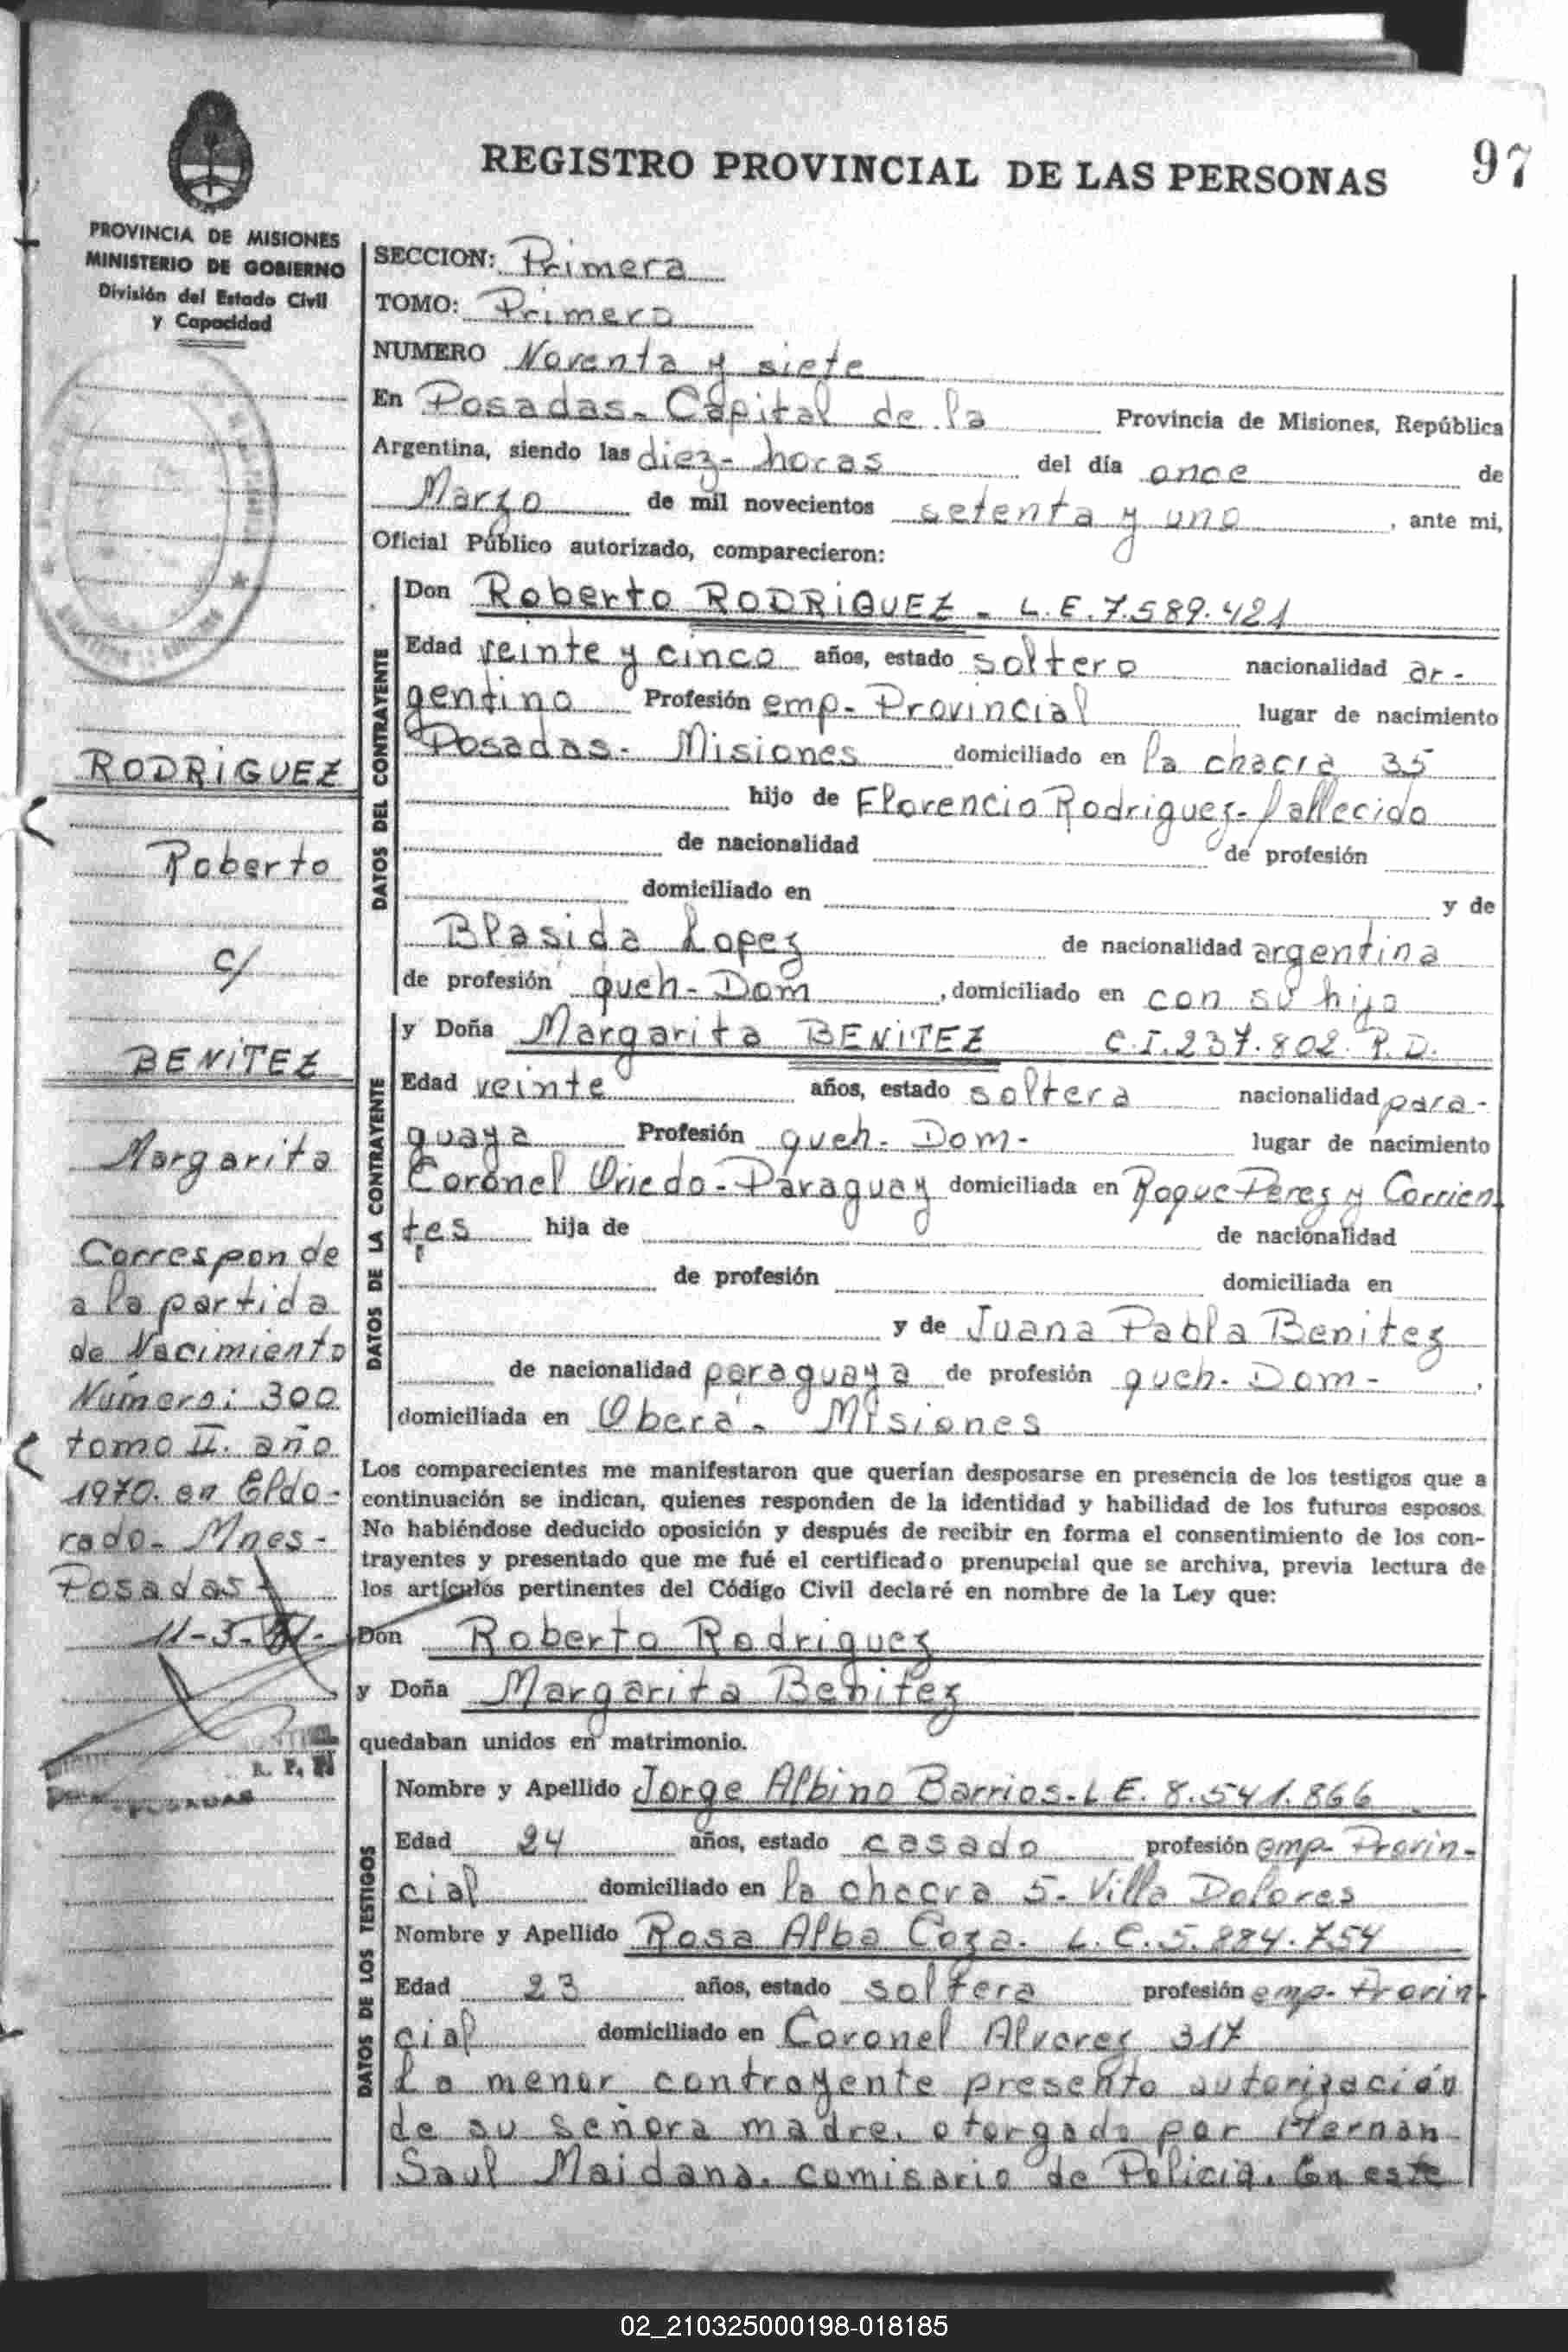 REGISTRO PROVINCIAL DE LAS PERSONAS
97
PROVINCIA DE MISIONES
MINISTERIO DE GOBIERNO
División del Estado Civil
y Capacidad
SECCION: Primera
TOMO: Primero
NUMERO Noventa y siete
En Posadas- Capital de la Provincia de Misiones, República
Argentina, siendo las diez- horas del día once de
Marzo de mil novecientos setenta y uno, ante mi,
Oficial Público autorizado, comparecieron:
DATOS DEL CONTRAYENTE
Don Roberto RODRIGUEZ - L.E.7.589.421
Edad veinte y cinco años, estado soltero nacionalidad ar-
gentino Profesión emp- Provincial lugar de nacimiento
Posadas- Misiones domiciliado en la chacra 35
hijo de Florencio Rodriguez- fallecido
de nacionalidad de profesión
domiciliado en y de
Blasida Lopez de nacionalidad argentina
de profesión queh- Dom, domiciliado en con su hijo
DATOS DE LA CONTRAYENTE
y Doña Margarita BENITEZ C.I.237.802. P.D.
Edad veinte años, estado soltera nacionalidad para-
guaya Profesión queh- Dom- lugar de nacimiento
Coronel Oviedo- Paraguay domiciliada en Roque Perez y Corrien
tes hija de de nacionalidad
de profesión domiciliada en
y de Juana Pabla Benitez
de nacionalidad paraguaya de profesión queh- Dom-,
domiciliada en Oberá- Misiones
Los comparecientes me manifestaron que querían desposarse en presencia de los testigos que a
continuación se indican, quienes responden de la identidad y habilidad de los futuros esposos.
No habiéndose deducido oposición y después de recibir en forma el consentimiento de los con-
trayentes y presentado que me fué el certificado prenupcial que se archiva, previa lectura de
los artículos pertinentes del Código Civil declaré en nombre de la Ley que:
Don Roberto Rodriguez
y Doña Margarita Benitez
quedaban unidos en matrimonio.
DATOS DE LOS TESTIGOS
Nombre y Apellido Jorge Albino Barrios- L.E. 8.541.866
Edad 24 años, estado casado profesión emp- Provin-
cial domiciliado en la chacra 5- Villa Dolores
Nombre y Apellido Rosa Alba Coza. L.C.5.884.754
Edad 23 años, estado soltera profesión emp- Provin-
cial domiciliado en Coronel Alvarez 317
La menor contrayente presento autorización
de su señora madre, otorgada por Hernan
Saul Maidana, comisario de Policia. En este
RODRIGUEZ
Roberto
c/
BENITEZ
Margarita
Corresponde
a la partida
de Nacimiento
Número: 300
tomo II. año
1970. en Eldo-
rado- Mnes-
Posadas-
11-3-71-
R. P.
POSADAS
02_210325000198-018185